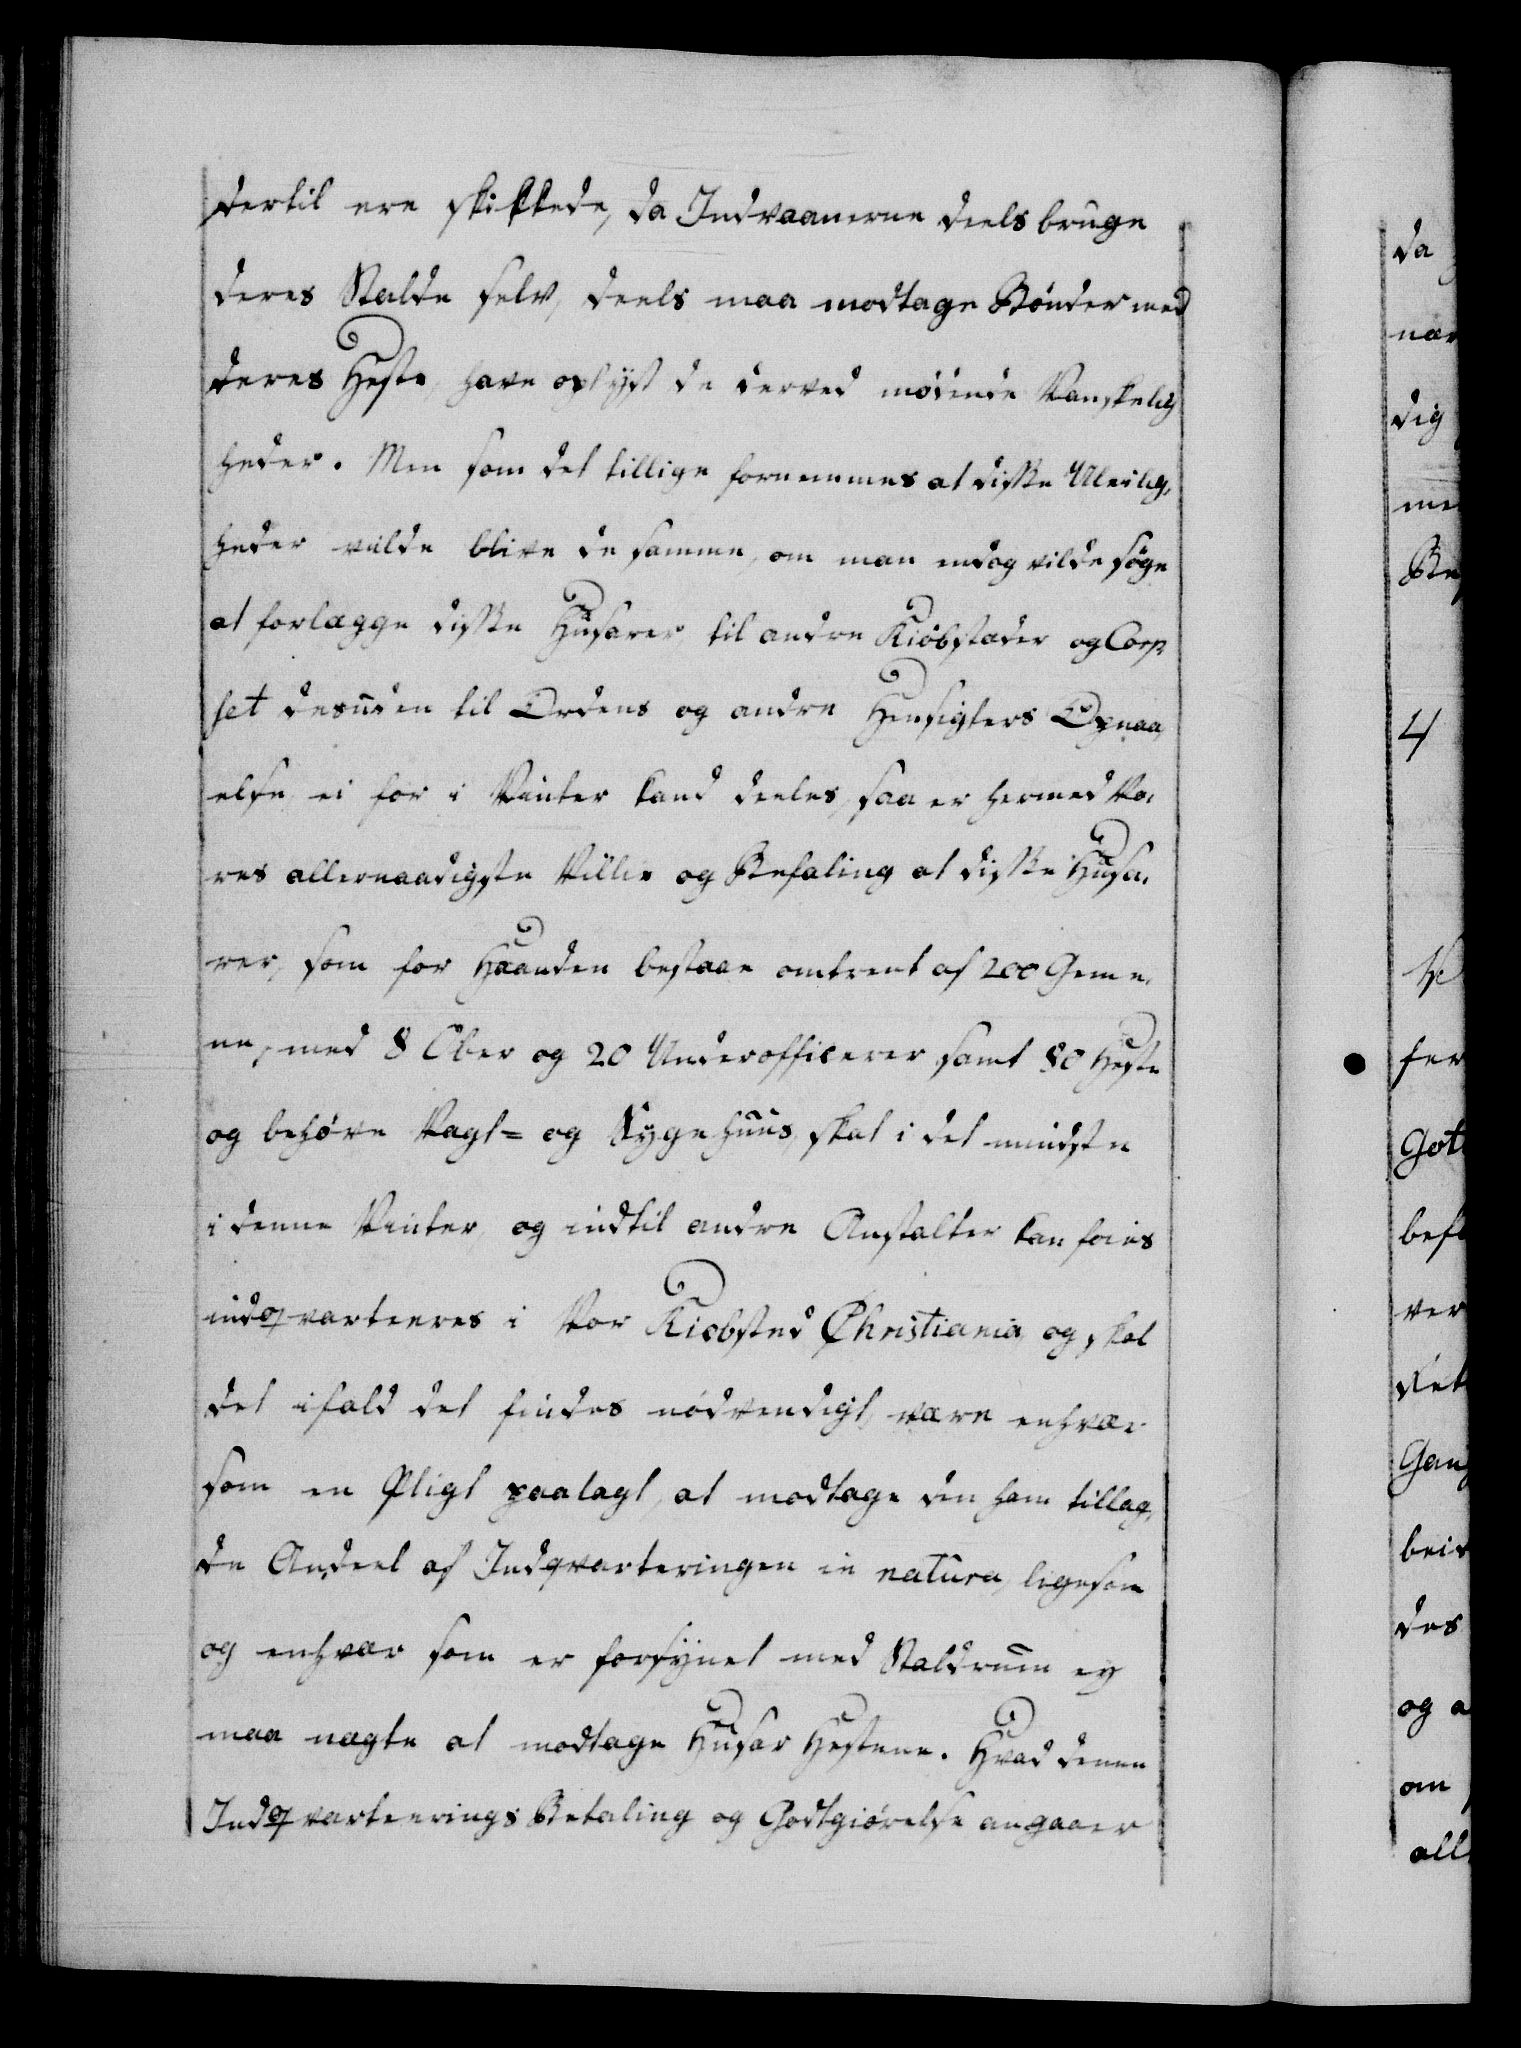 dertil ere skikkede, da Indvaanerne deels bruge
deres Stalde selv, deels maa modtage Bønder med
deres Heste, have oplyst de derved mødende Vanskelig
heder. Men som det tillige fornemmes at disse Uleilig,
heder vilde blive de samme, om man endog vilde søge
at forlægge disse Husarer til andre Kiøbstæder og Corp
set desuden til Ordens og andre Hensigters Opnaa,
else, ei for i Vinter kand deeles, saa er hermed Vo,
res allernaadigste Villie og Befaling at disse Husa,
rer, som for Haanden bestaae omtrent af 200 Geme,
ne, med 8 Ober og 20 Underofficerer samt 80 Heste
og behøve Vagt= og Sygehuus, skal i det mindste
i denne Vinter, og indtil andre Anstalter kan føies
indqvarteeres i Vor Kiøbsted Christiania, og skal
det ifald det findes nødvendigt, være enhver
som en Pligt paalagt, at modtage den ham tillag,
de Andeel af Indqvarteringen in natura, ligesom
og enhver som er forsynet med Staldrum ey
maa nægte at modtage Husar Hestene. Hvad denne
Indqvarteerings Betaling og Godtgiørelse angaaer
da
dig
4
Got
om